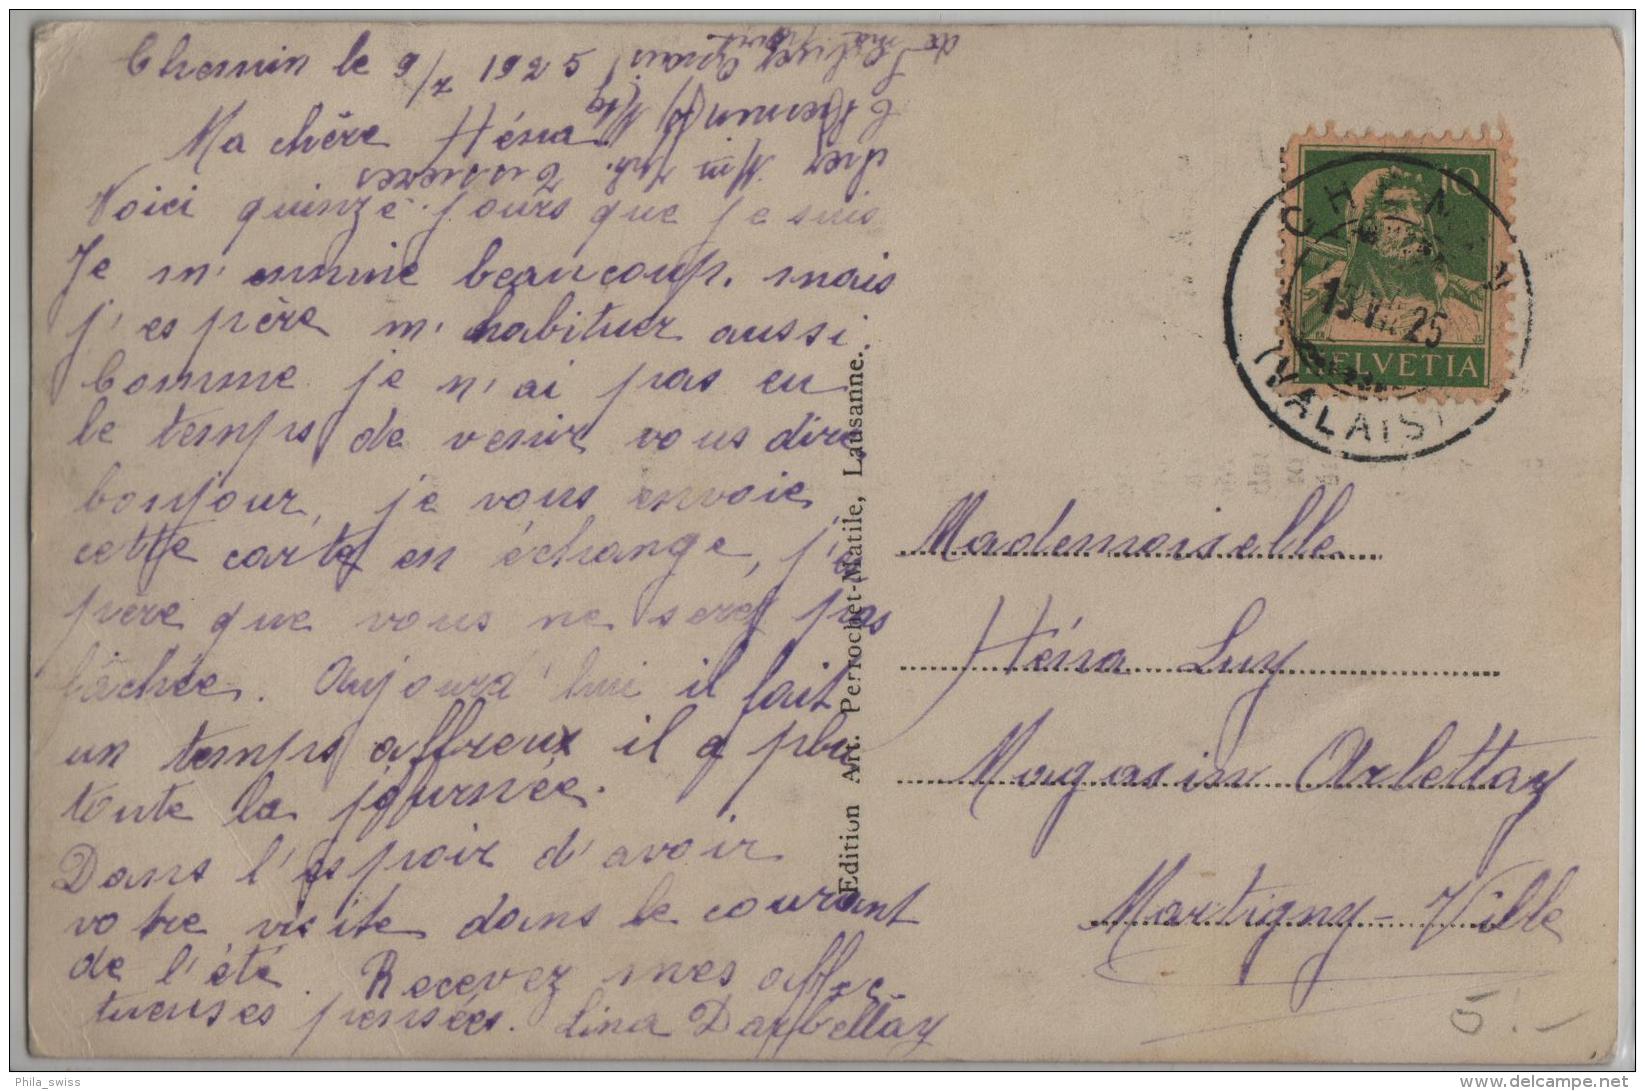 Chemin le 9/7 1925
Ma chère Héna
Voici quinze jours que je suis
Je m'ennuie beaucoup, mais
j'espère m'habituer aussi.
Comme je n'ai pas eu
le temps de venir vous dire
bonjour, je vous envoie
cette carte en échange, j'es
père que vous ne serez pas
fâchée. Aujourd'hui il fait
un temps affreux il a plu
toute la journée.
Dans l'espoir d'avoir
votre visite dans le courant
de l'été. Recevez mes affec-
tueuses pensées. Lina Darbellay
chez Mm
Chemin
Edition Art. Perrochet-Matile, Lausanne.
10
HELVETIA
CHEMIN
VII 25
(VALAIS)
Mademoiselle
Héna Luy
Magasin Arlettay
Martigny-Ville
5.-
Phila_swiss
delcampe.net